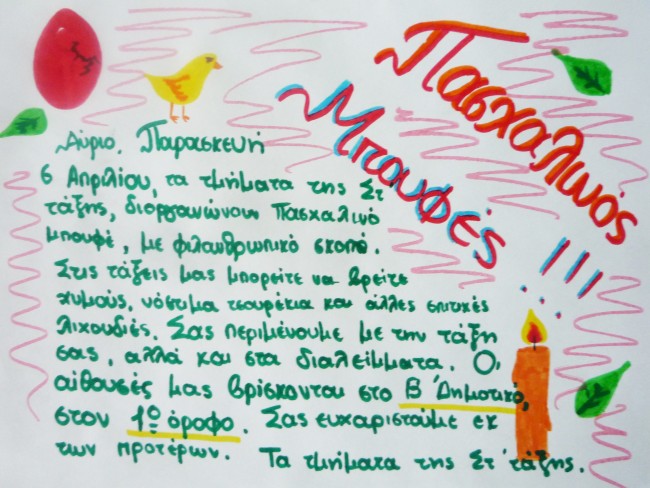 Πασχαλινός
Μπουφές
!!!
Αύριο, Παρασκευή
6 Απριλίου, τα τμήματα της Στ
τάξης, διοργανώνουν Πασχαλινό
μπουφέ, με φιλανθρωπικό σκοπό.
Στις τάξεις μας μπορείτε να βρείτε
χυμούς, νόστιμα τσουρέκια και άλλες σπιτικές
λιχουδιές. Σας περιμένουμε με την τάξη
σας, αλλά και στα διαλείμματα. Οι
αίθουσές μας βρίσκονται στο Β΄ Δημοτικό,
στον 1ο όροφο. Σας ευχαριστούμε εκ
των προτέρων. Τα τμήματα της Στ΄ τάξης.